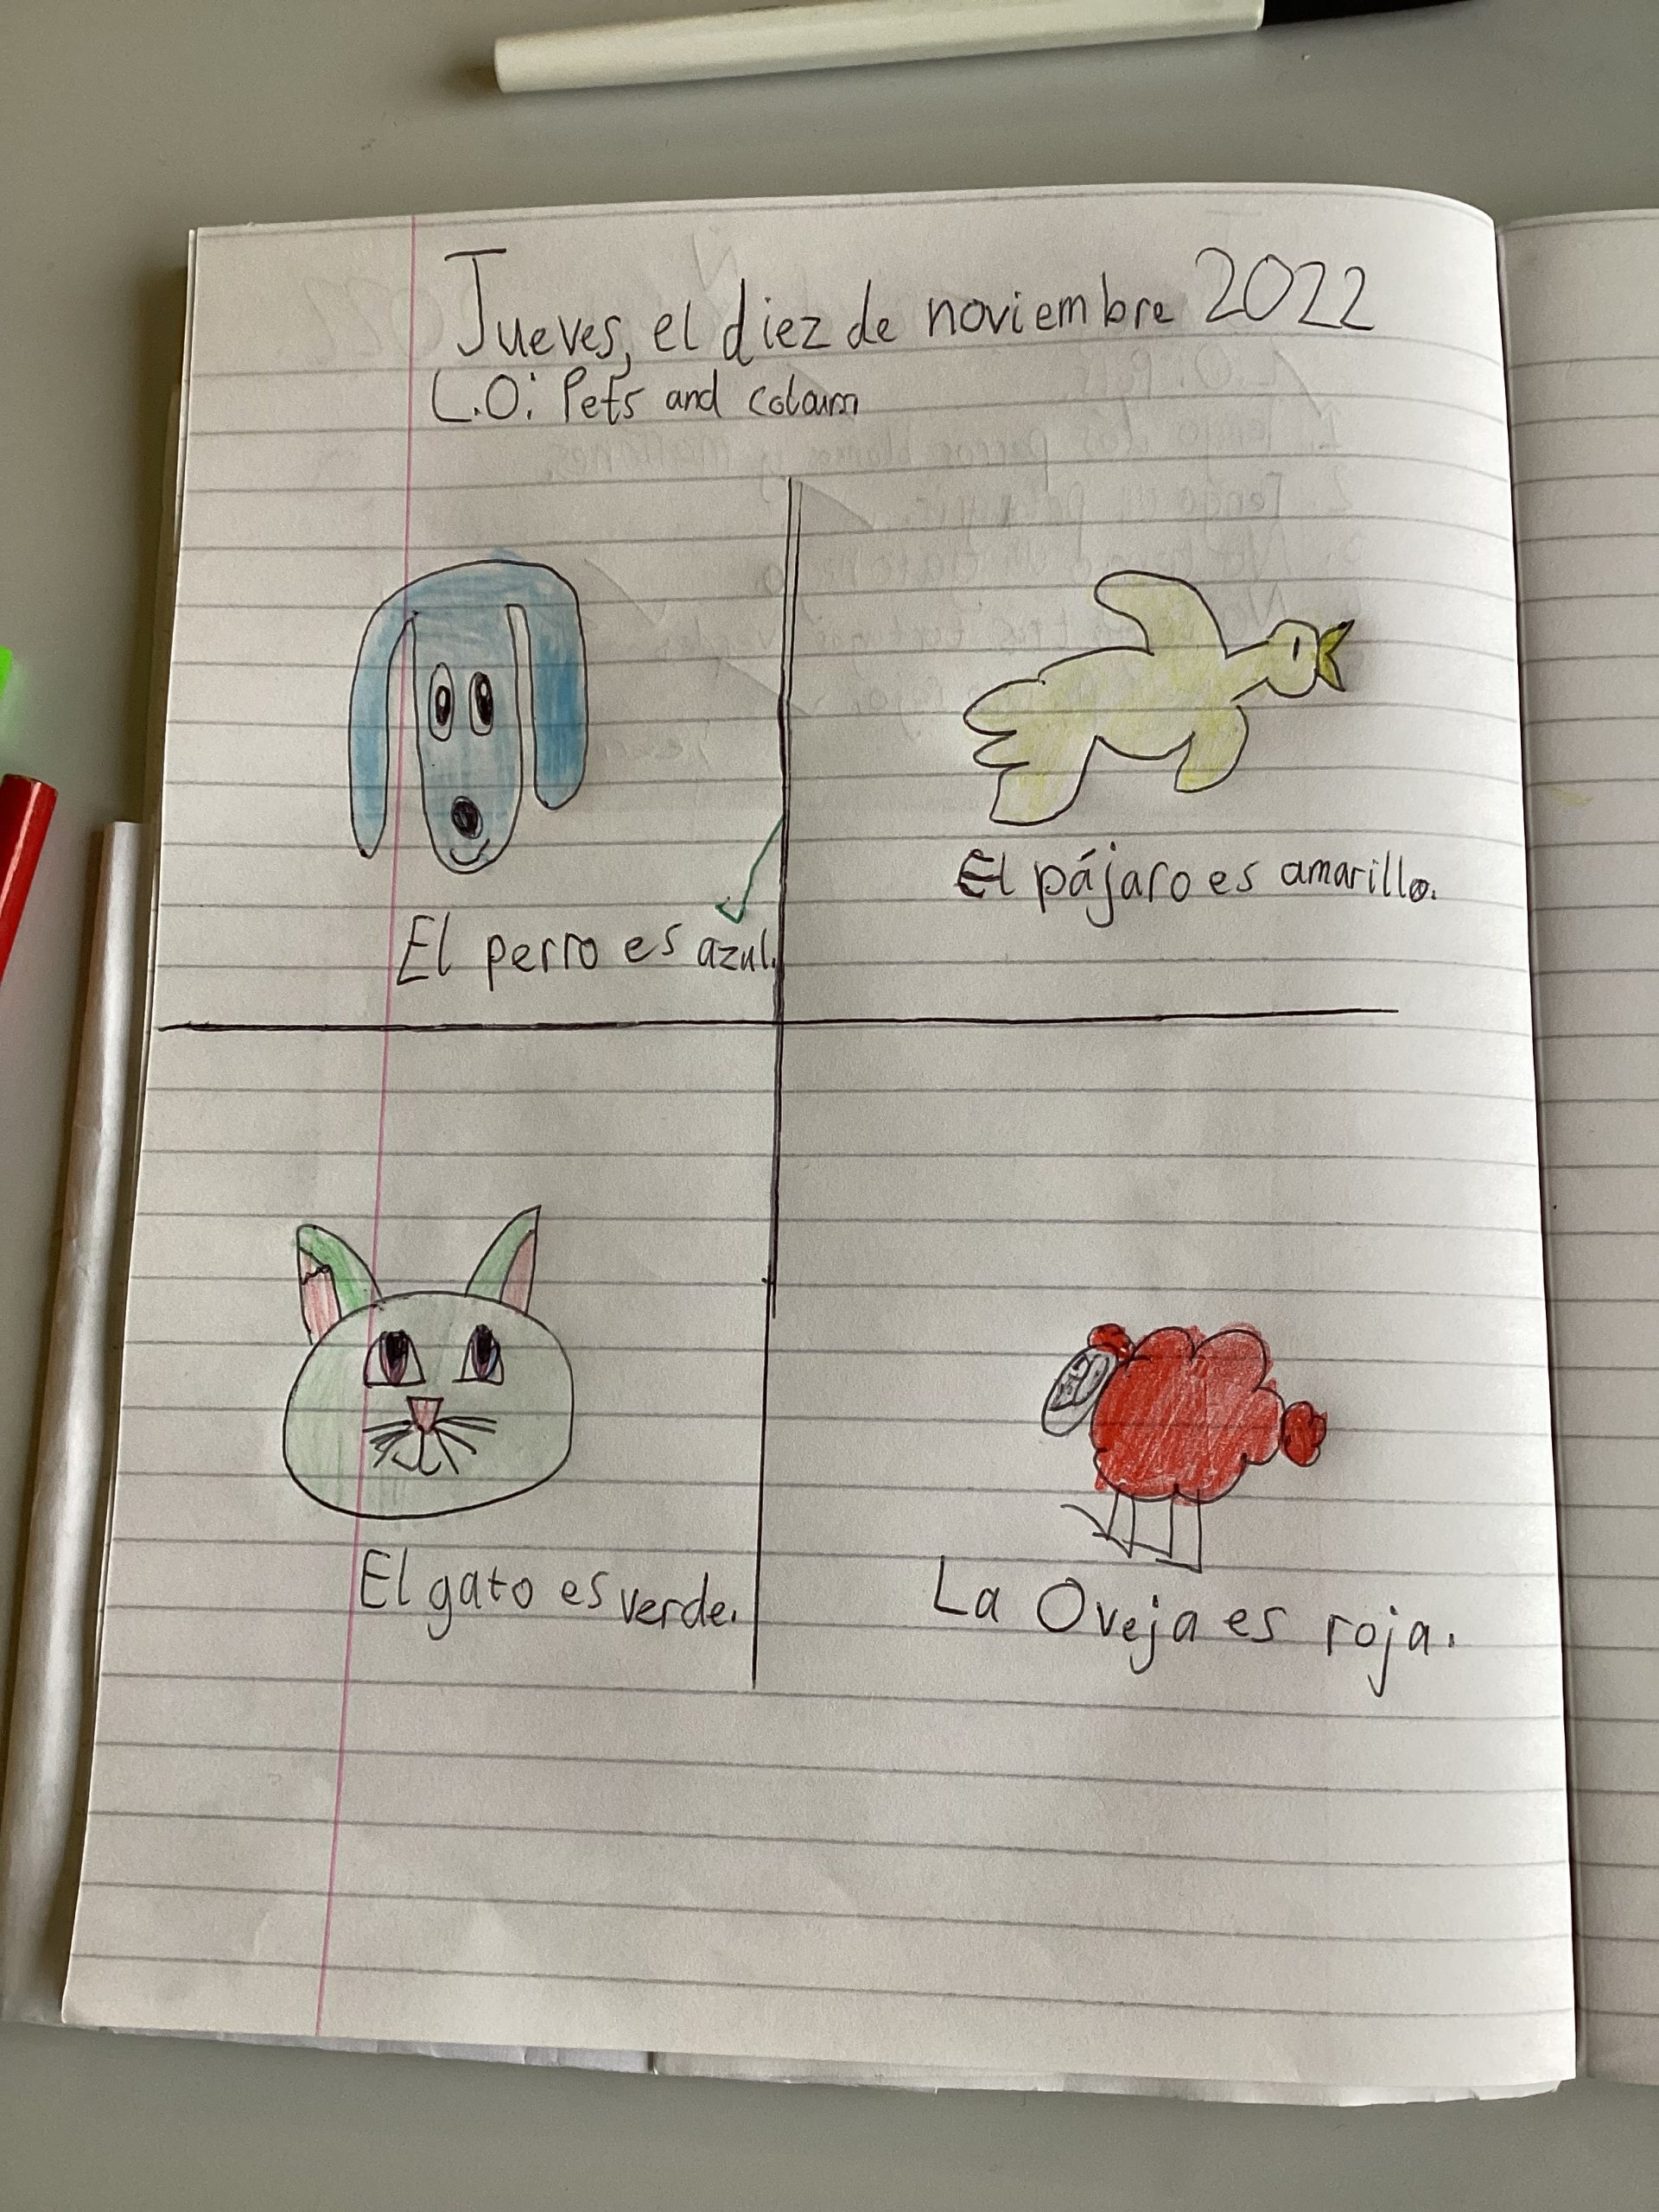 Jueves, el diez de noviembre 2022
L.O: Pets and colours
El perro es azul.
El pájaro es amarillo.
El gato es verde.
La Oveja es roja.